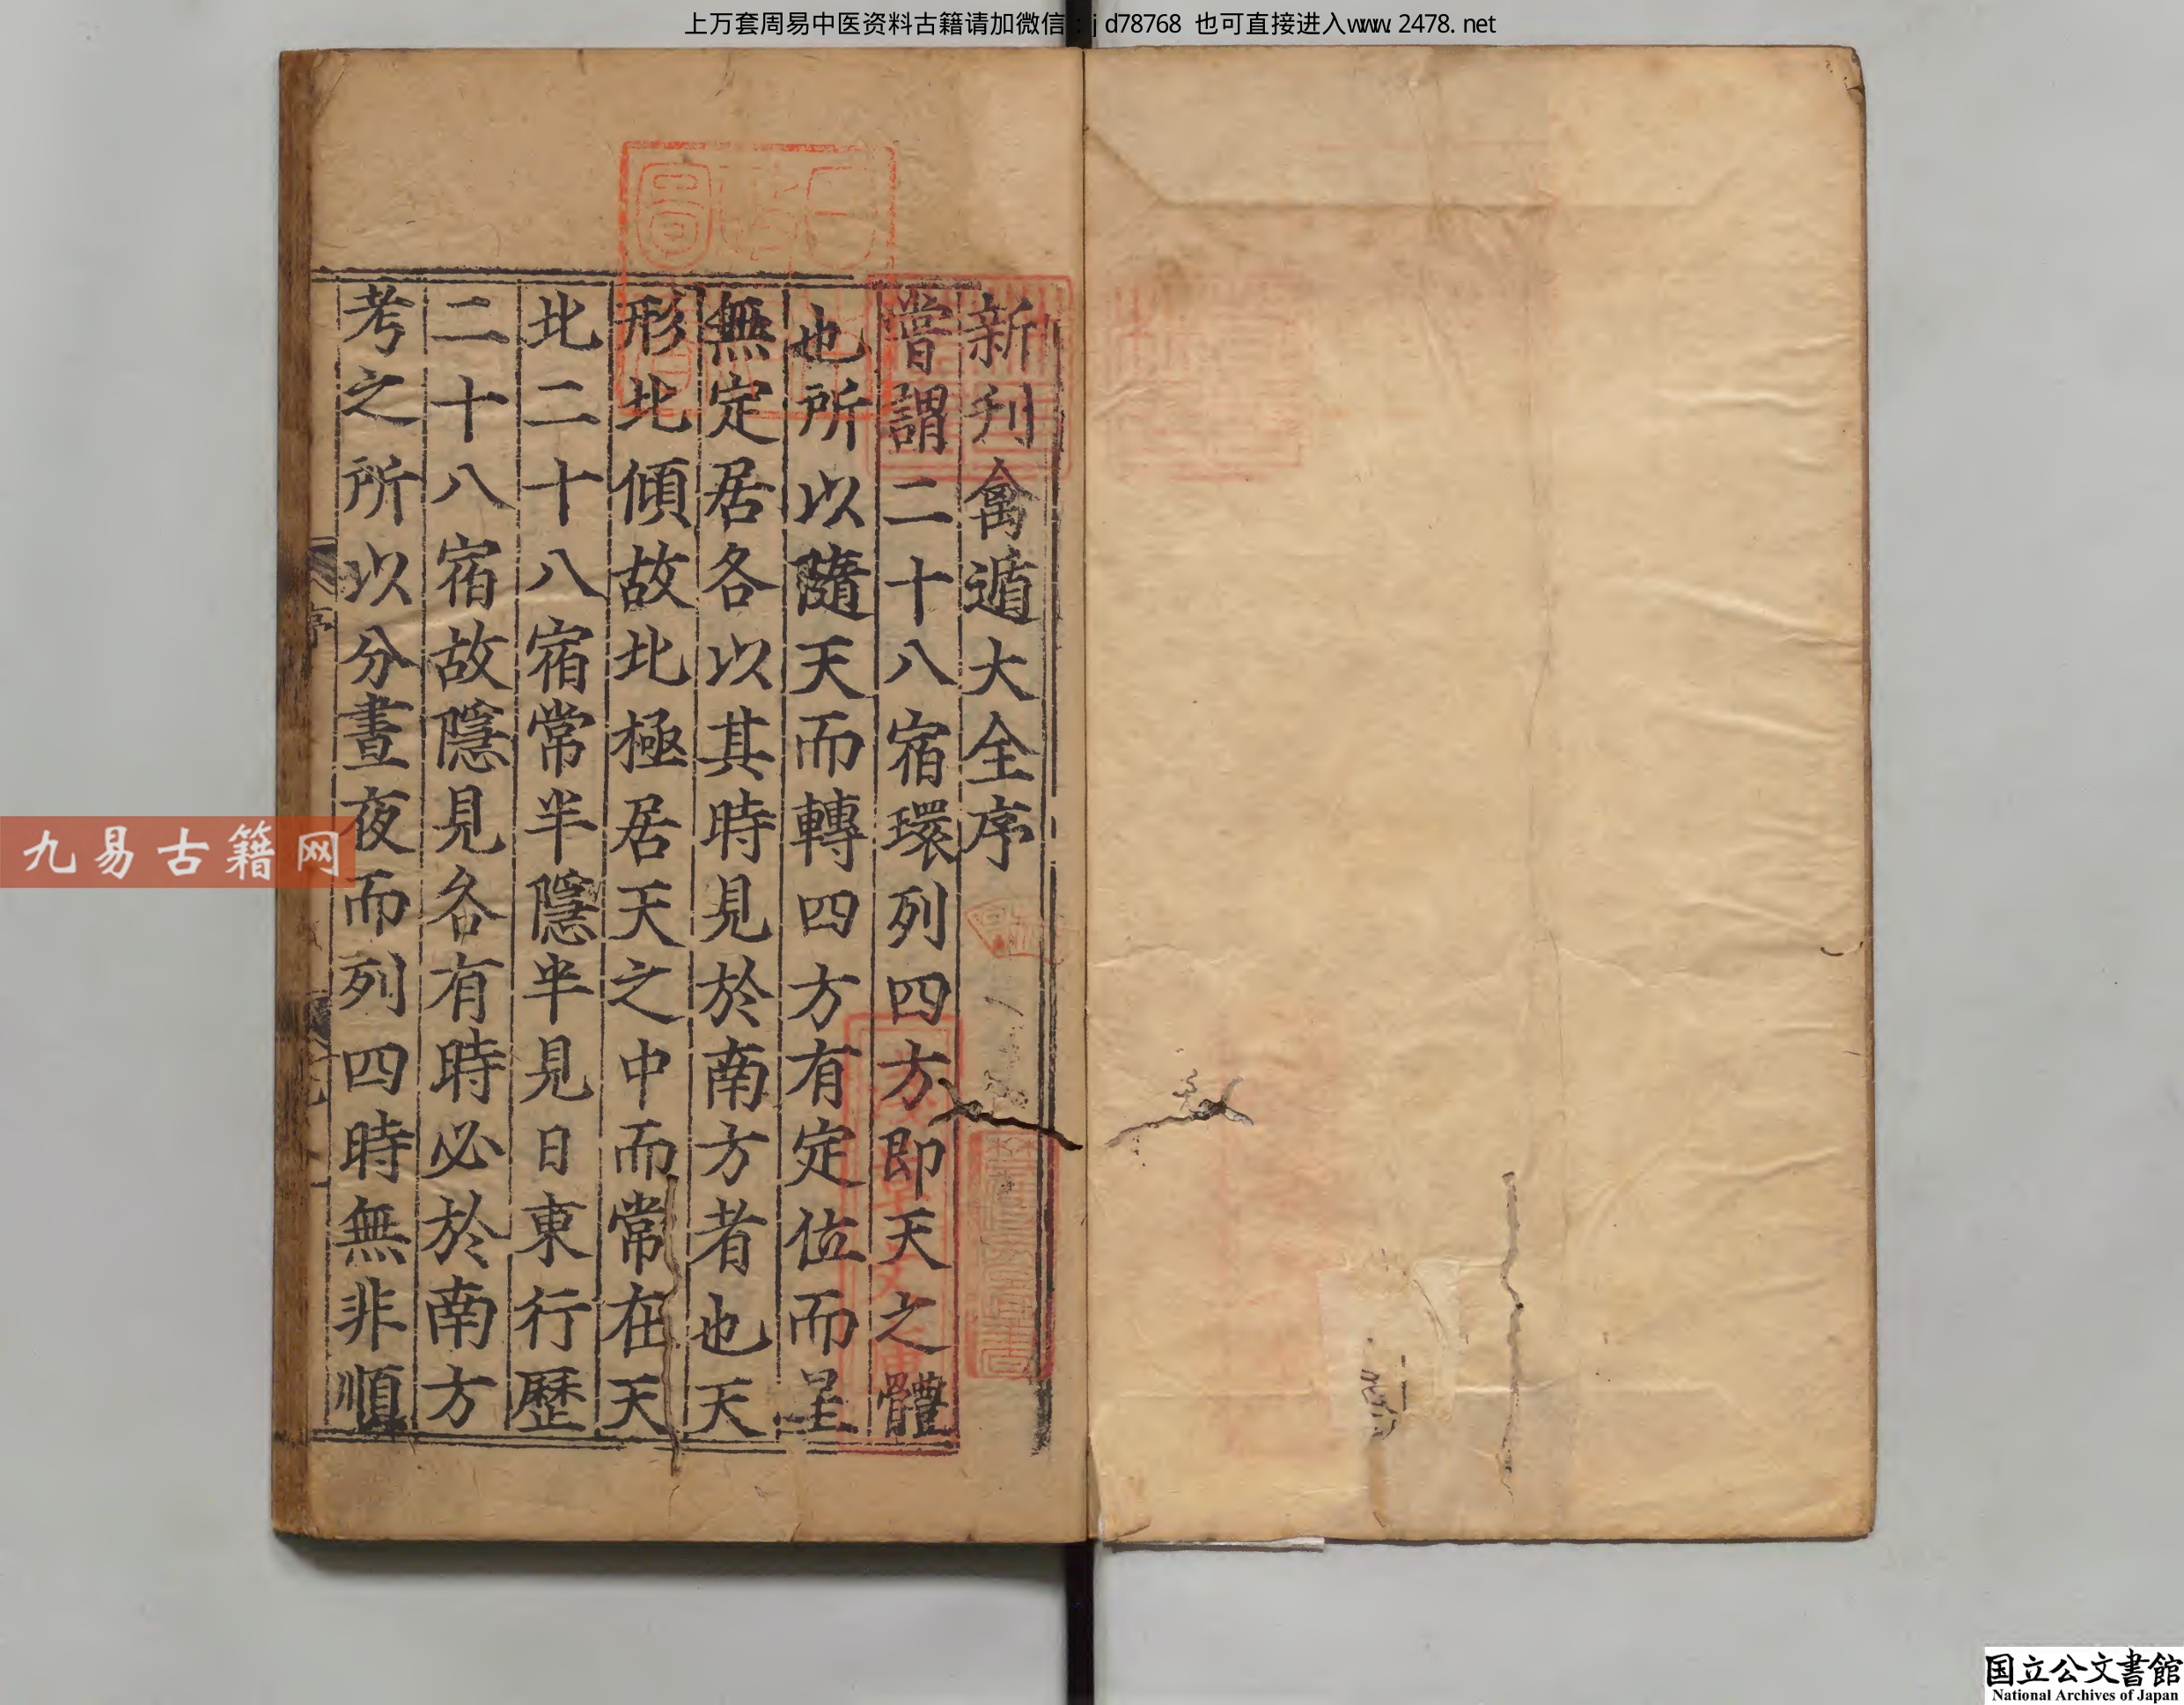 上万套周易中医资料古籍请加微信：jd78768 也可直接进入www.2478.net
新刋禽遁大全序
嘗謂二十八宿環列四方即天之體
也所以隨天而轉四方有定位而星
無定居各以其時見於南方者也天
形北傾故北極居天之中而常在天
北二十八宿常半隱半見日東行歷
二十八宿故隱見各有時必於南方
考之所以分晝夜而列四時無非順
序
九易古籍网
国立公文書館
National Archives of Japan